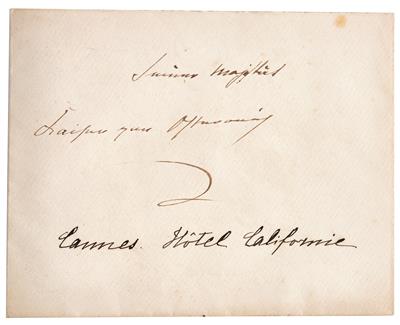 Seiner Majestät
Kaiser von Österreich
Cannes. Hôtel Californie